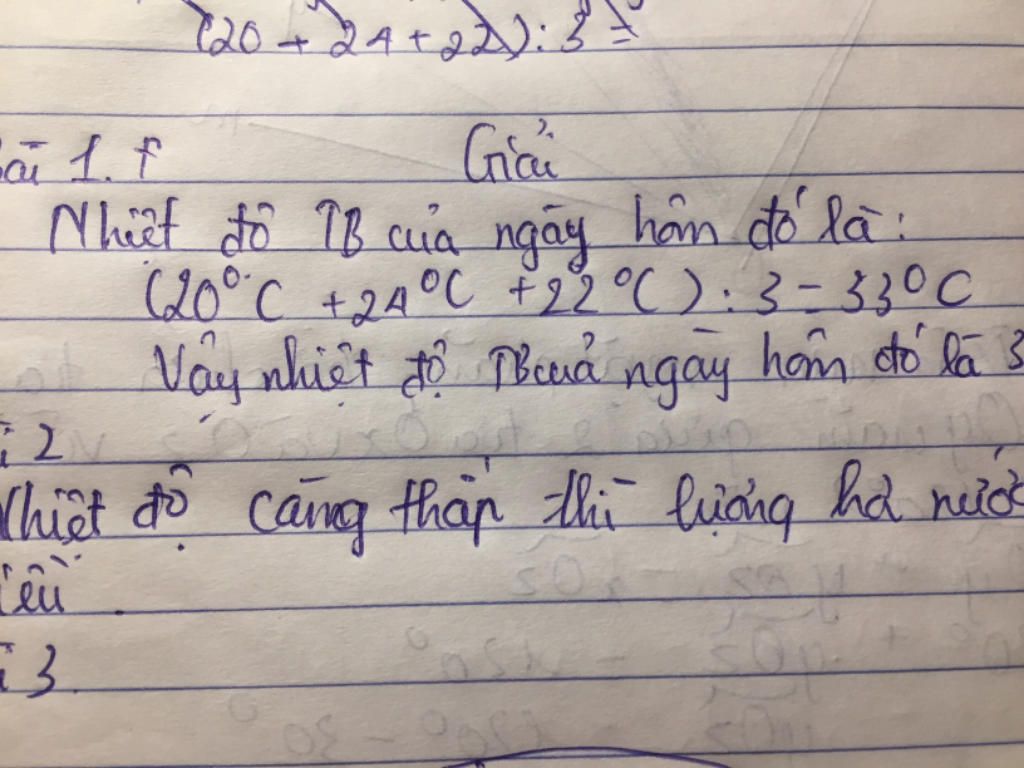 (20 + 24 + 22) : 3 =
Bài 1. f Giải
Nhiệt độ TB của ngày hôm đó là:
(20°C + 24°C + 22°C) : 3 = 33°C
Vậy nhiệt độ TB của ngày hôm đó là 3
i 2
Nhiệt độ càng thấp thì lượng hơi nước
iều.
i 3